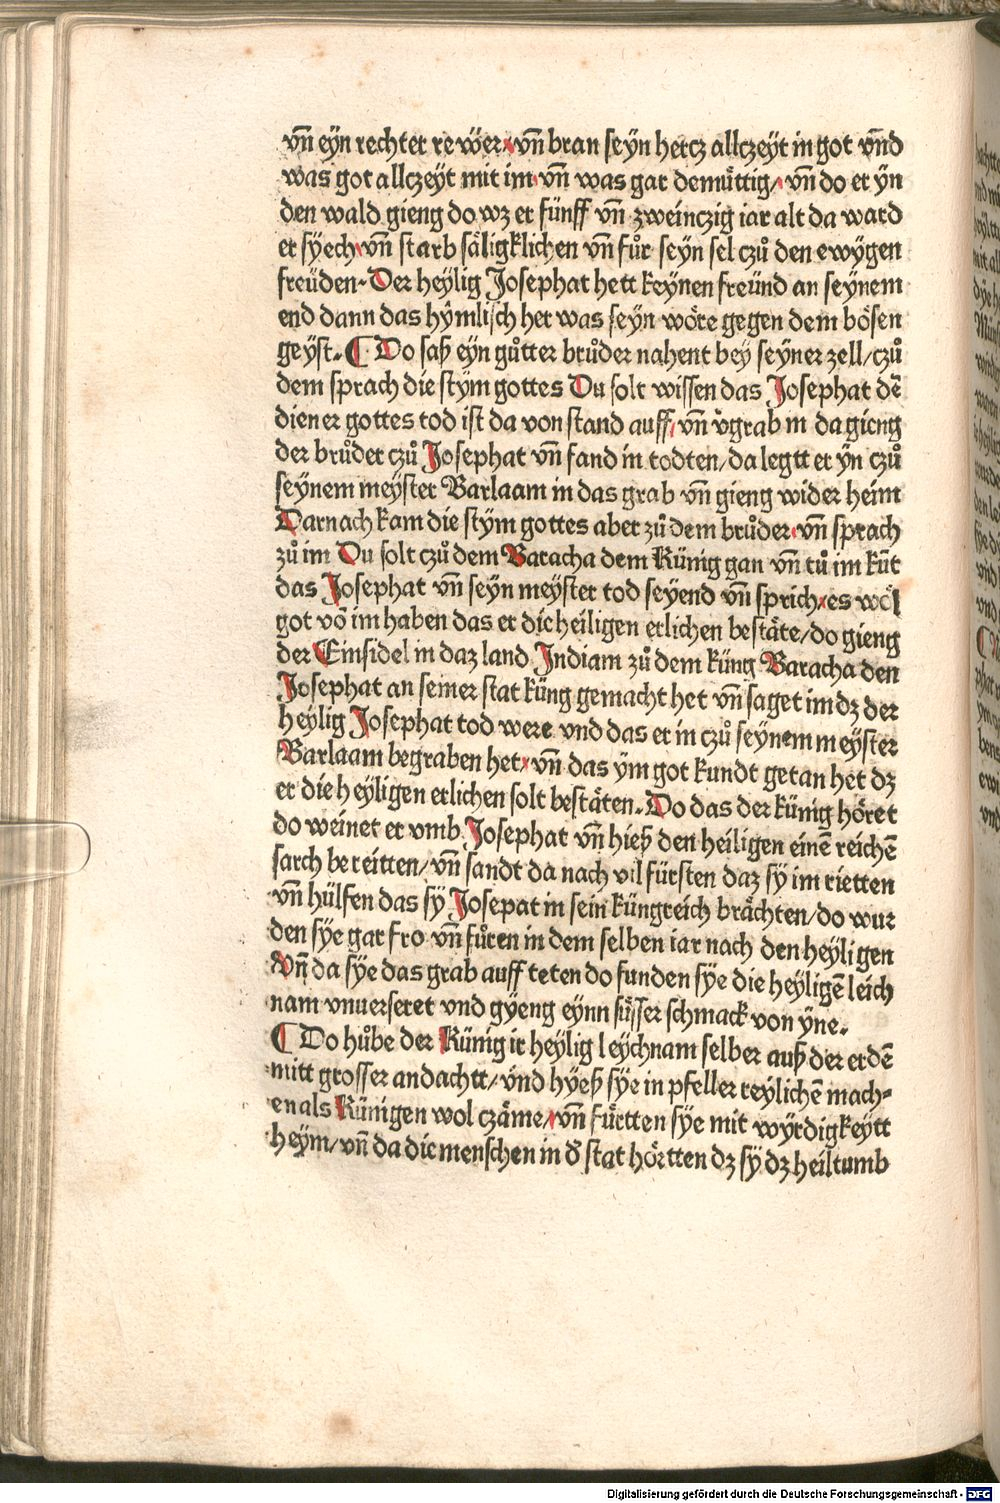 vñ eÿn rechter rewër vñ bran seÿn hercz allczeÿt in got vnd
was got allczeÿt mit im vñ was gar demuͤttig/ vñ do er ÿn
den wald gieng do wz er fünff vñ zweinczig iar alt da ward
er sÿech vñ starb säligklichen vñ fuͦr seÿn sel czuͦ den ewÿgen
freüden. Der heÿlig Josephat hett keÿnen freünd an seÿnem
end dann das hÿmlisch her was seÿn wöre gegen dem bösen
geÿst. ¶ Do saß eÿn guͦtter bruͦder nahent beÿ seÿner zell/czuͦ
dem sprach die stÿm gottes Du solt wissen das Josephat dē
diener gottes tod ist da von stand auff/ vñ v̓grab in da gieng
der bruͦder czuͦ Josephat vñ fand in todten/da legtt er ÿn czuͦ
seÿnem meÿster Barlaam in das grab vñ gieng wider heim
Darnach kam die stÿm gottes aber zuͦ dem bruͦder vñ sprach
zuͦ im Du solt czuͦ dem Baracha dem Künig gan vñ tuͦ im kūt
das Josephat vñ seÿn meÿster tod seÿend vñ sprich es wöl
got vō im haben das er dic heiligen erlichen bestäte/do gieng
der Einsidel in daz land Indiam zuͦ dem küng Baracha den
Josephat an seiner stat küng gemacht het vñ saget im dz der
heÿlig Josephat tod were vnd das er in czuͦ seÿnem meÿster
Barlaam begraben het vñ das ÿm got kundt getan het dz
er die heÿligen erlichen solt bestäten. Do das der künig höret
do weinet er vmb Josephat vñ hieß den heiligen einē reichē
sarch bereitten/ vñ sandt da nach vil fürsten daz sÿ im rietten
vñ hülfen das sÿ Josepat in sein küngreich brächten/do wur
den sÿe gar fro vñ fuͦren in dem selben iar nach den heÿligen
Vñ da sÿe das grab auff teten do funden sÿe die heÿligē leich
nam vnuerseret vnd gÿeng eÿnn suͤsser schmack von ÿne.
¶ Do huͦbe der Künig ir heÿlig leÿchnam selber auß der erdē
mitt grosser andachtt/ vnd hÿeß sÿe in pfeller reÿlichē mach-
en als Künigen wol czäme/ vñ fuͤrtten sÿe mit wÿrdigkeÿtt
heÿm/ vñ da dic menschen in d̓ stat hörtten dz sÿ dz heiltumb
Digitalisierung gefördert durch die Deutsche Forschungsgemeinschaft - DFG